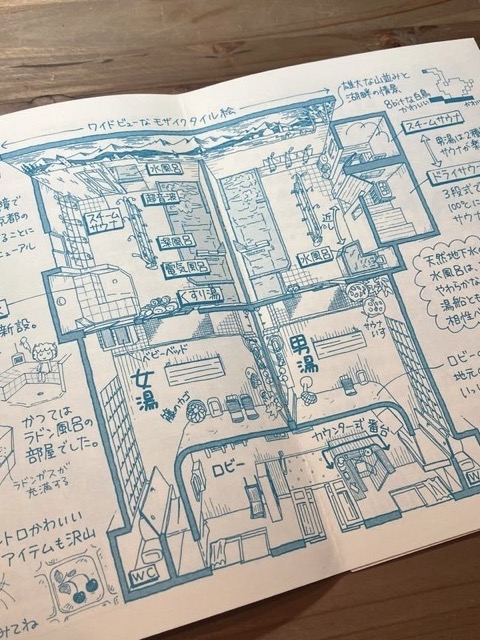 ワイドビューなモザイクタイル絵
雄大な山並みと
湖畔の情景
8bitな白鳥
かわいい
スチームサウナ
ドライサウナ
3段式で
100℃に
サウナ
天然地下水の
水風呂は、
やわらかな
湯船とも
相性
水風呂
超音波
スチーム
サウナ
深風呂
電気風呂
くすり湯
近い
水風呂
サウナ
いす
新設。
ベビーベッド
女湯
籐のカゴ
男湯
かつては
ラドン風呂の
部屋でした。
ラドンガスが
充満する
カウンター式番台
ロビー
ロビーの
地元の
レトロかわいい
アイテムも沢山
WC
みてね